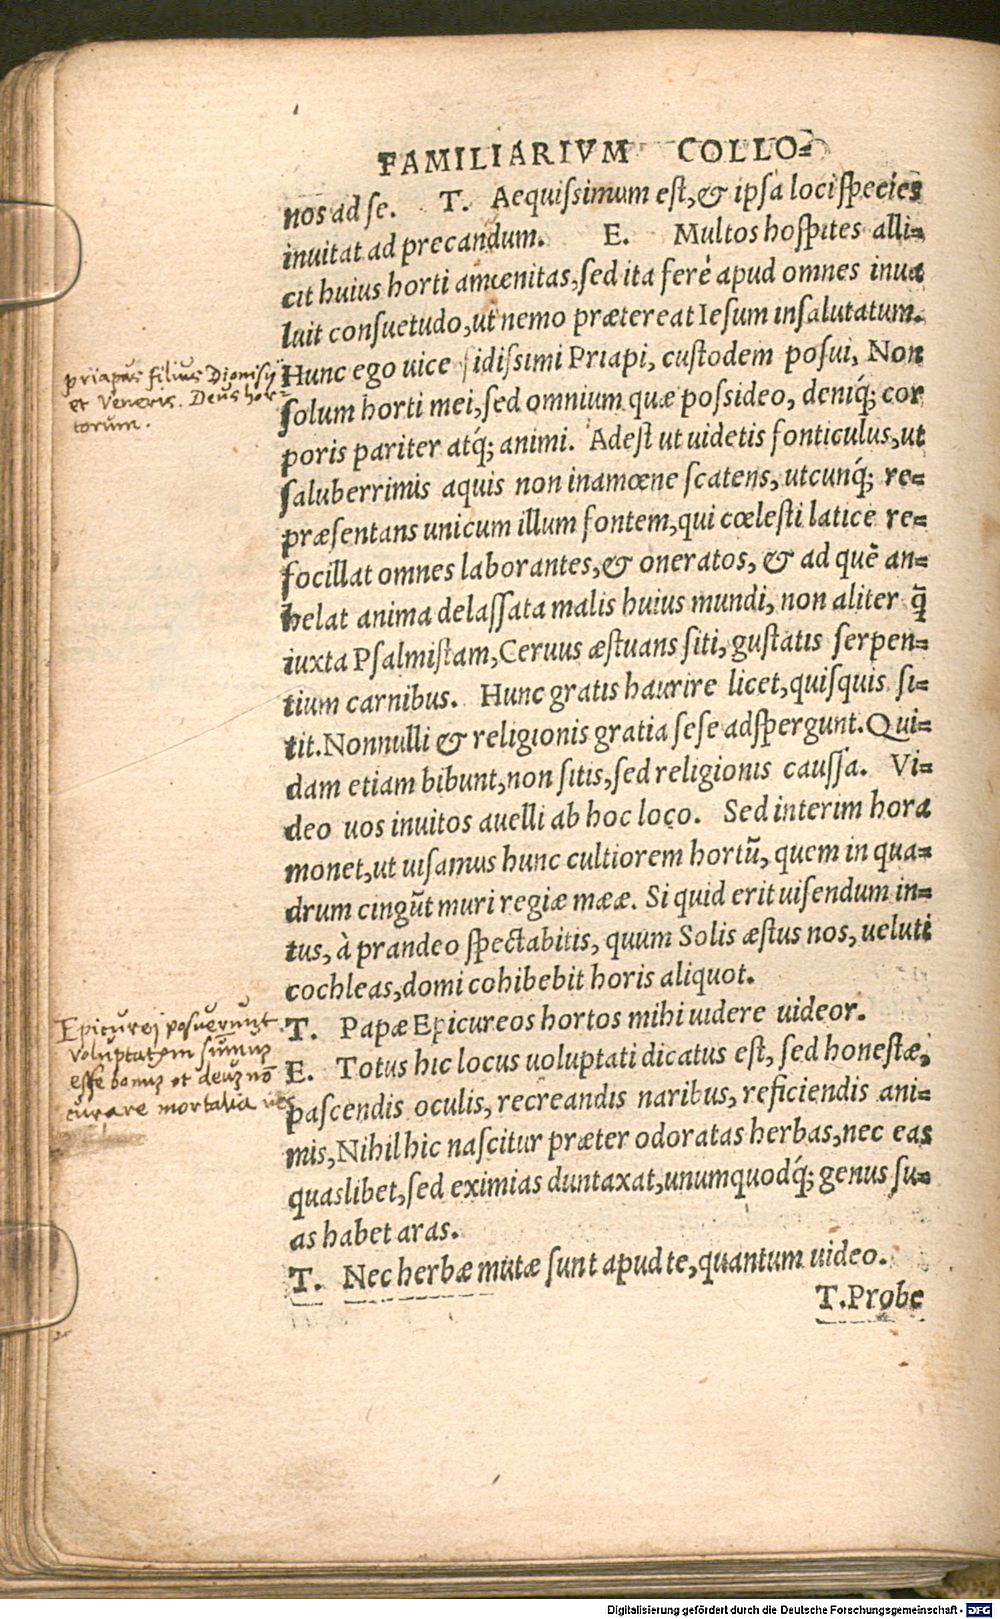 FAMILIARIVM COLLO-
nos ad se. T. Aequissimum est, & ipsa loci species
inuitat ad precandum. E. Multos hospites alli-
cit huius horti amœnitas, sed ita ferè apud omnes inua
luit consuetudo, ut nemo prætereat Iesum insalutatum.
Hunc ego uice sidissimi Priapi, custodem posui, Non
solum horti mei, sed omnium quæ possideo, deniq́; cor
poris pariter atq́; animi. Adest ut uidetis fonticulus, ut
saluberrimis aquis non inamœne scatens, utcunq́; re-
præsentans unicum illum fontem, qui cœlesti latice re-
focillat omnes laborantes, & oneratos, & ad quē an-
helat anima delassata malis huius mundi, non aliter q̃
iuxta Psalmistam, Ceruus æstuans siti, gustatis serpen-
tium carnibus. Hunc gratis haurire licet, quisquis si-
tit. Nonnulli & religionis gratia sese adspergunt. Qui-
dam etiam bibunt, non sitis, sed religionis caussa. Vi-
deo uos inuitos auelli ab hoc loco. Sed interim hora
monet, ut uisamus hunc cultiorem hortũ, quem in qua-
drum cingũt muri regiæ mææ. Si quid erit uisendum in-
tus, à prandeo spectabitis, quum Solis æstus nos, ueluti
cochleas, domi cohibebit horis aliquot.
T. Papæ Epicureos hortos mihi uidere uideor.
E. Totus hic locus uoluptati dicatus est, sed honestæ,
pascendis oculis, recreandis naribus, reficiendis ani-
mis, Nihil hic nascitur præter odoratas herbas, nec eas
quaslibet, sed eximias duntaxat, unumquodq́; genus su-
as habet aras.
T. Nec herbæ mutæ sunt apud te, quantum uideo.
T. Probe
priapus filius Dionisij
et Veneris. Deus hor-
torum.
Epicurei posuerunt
voluptatem sumus
esse bonus et deus nō
curare mortalia
Digitalisierung gefördert durch die Deutsche Forschungsgemeinschaft - DFG